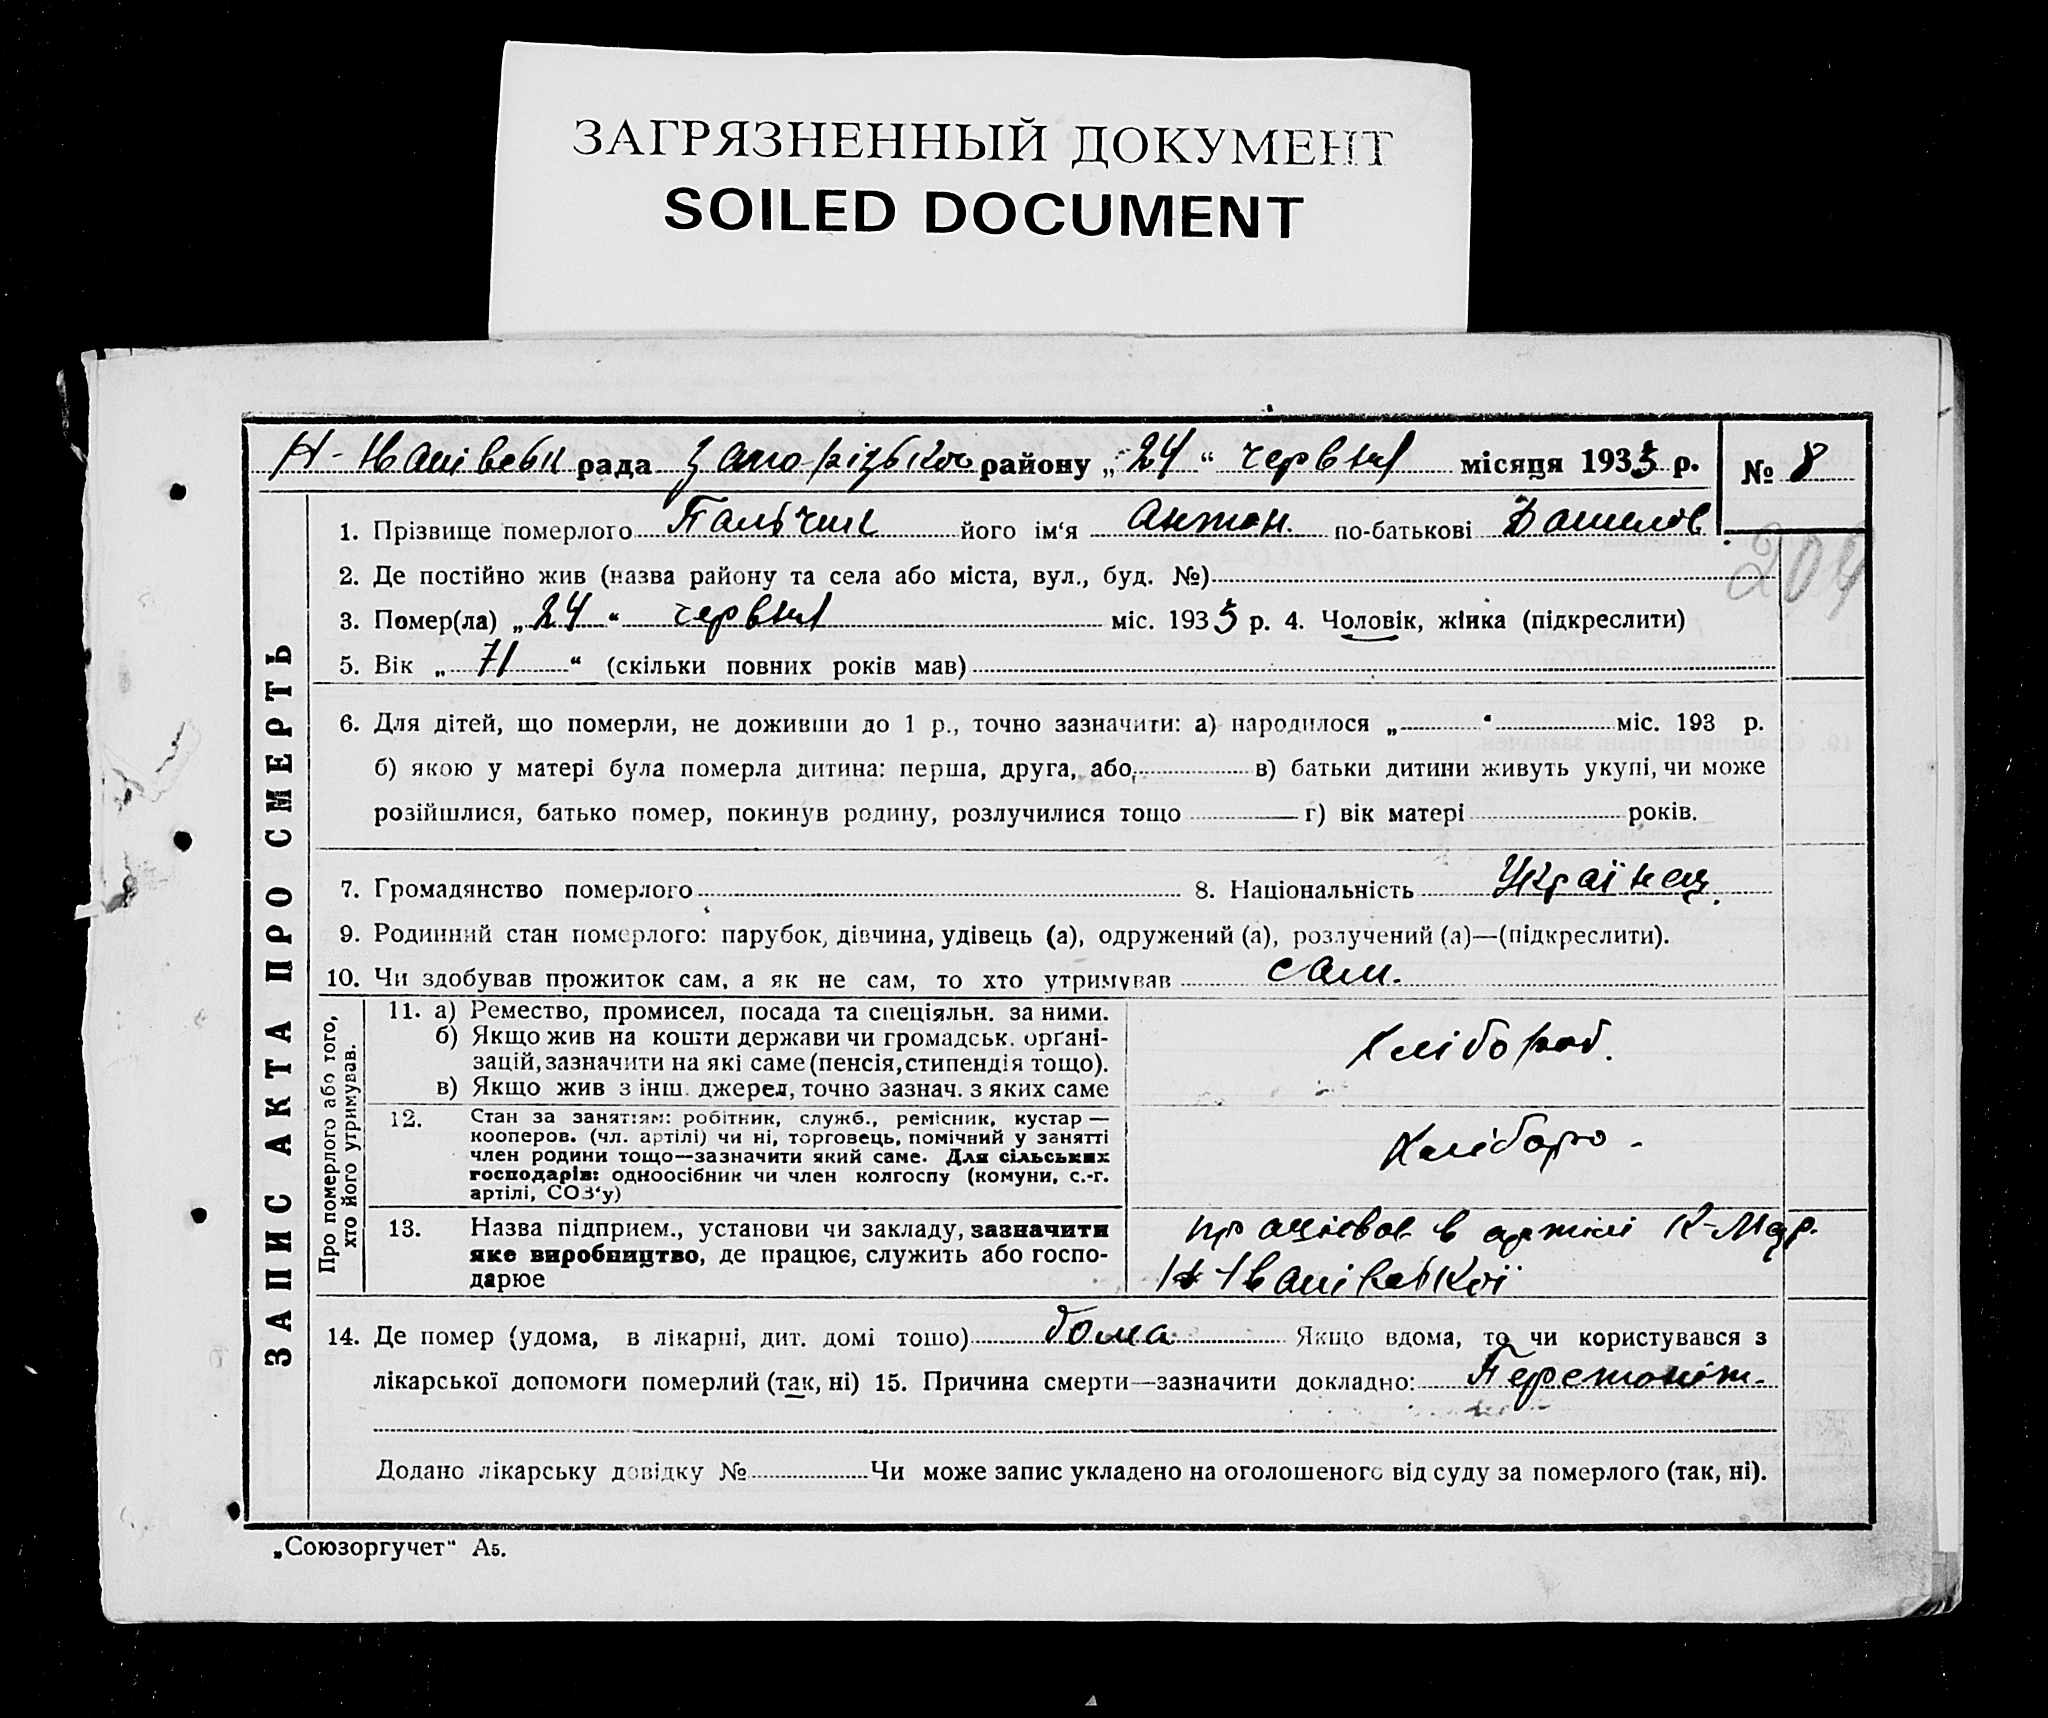 ЗАГРЯЗНЕННЫЙ ДОКУМЕНТ
SOILED DOCUMENT
Н-Іванівськ рада Запорізького району „24“ червня місяця 1933 р.
№ 8
204
ЗАПИС АКТА ПРО СМЕРТЬ
1. Прізвище померлого Пальчик його ім‘я Антон. по-батькові
2. Де постійно жив (назва району та села або міста, вул., буд. №)
3. Помер(ла) „24“ червня міс. 1933 р. 4. Чоловік, жінка (підкреслити)
5. Вік „71“ (скільки повних років мав)
6. Для дітей, що померли, не доживши до 1 р., точно зазначити: а) народилося „ “ міс. 193 р.
б) якою у матері була померла дитина: перша, друга, або, в) батьки дитини живуть укупі, чи може
розійшлися, батько помер, покинув родину, розлучилися тощо г) вік матері років.
7. Громадянство померлого 8. Національність Українец.
9. Родинний стан померлого: парубок, дівчина, удівець (а), одружений (а), розлучений (а)—(підкреслити).
10. Чи здобував прожиток сам, а як не сам, то хто утримував сам.
Про померлого або того,
хто його утримував.
11. а) Ремество, промисел, посада та спеціяльн. за ними.
б) Якщо жив на кошти держави чи громадськ. орґані-
зацій, зазначити на які саме (пенсія, стипендія тощо).
в) Якщо жив з інш. джерел, точно зазнач. з яких саме
Хлібороб.
12. Стан за заняттям: робітник, служб., ремісник, кустар —
кооперов. (чл. артілі) чи ні, торговець, помічний у занятті
член родини тощо—зазначити який саме. Для сільських
господарів: одноосібник чи член колгоспу (комуни, с.-г.
артілі, СОЗ‘у)
Хліборо-
13. Назва підприєм., установи чи закладу, зазначити
яке виробництво, де працює, служить або госпо-
дарює
працював в артілі К-Мар.
Н-Іванівської
14. Де помер (удома, в лікарні, дит. домі тощо) дома Якщо вдома, то чи користувався з
лікарської допомоги померлий (так, ні) 15. Причина смерти—зазначити докладно: Перетоніт.
Додано лікарську довідку № Чи може запис укладено на оголошеного від суду за померлого (так, ні).
„Союзоргучет“ А5.